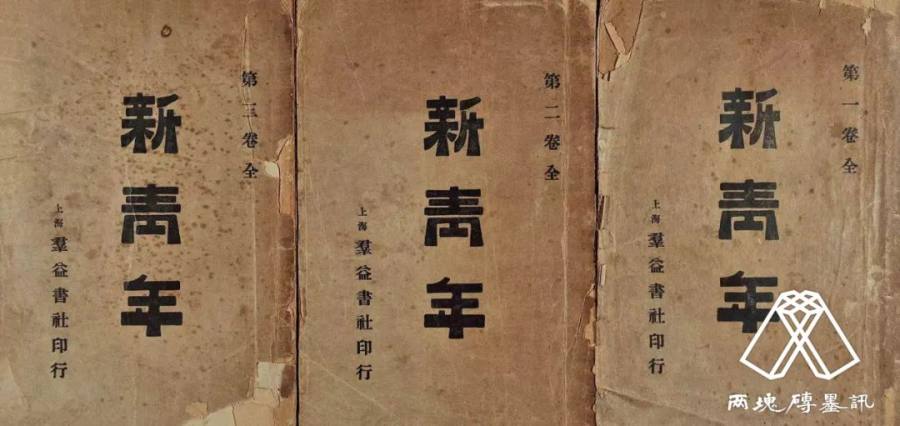 第一卷全
新青年
上海 羣益書社印行
第二卷全
新青年
上海 羣益書社印行
第三卷全
新青年
上海 羣益書社印行
两塊磚墨訊